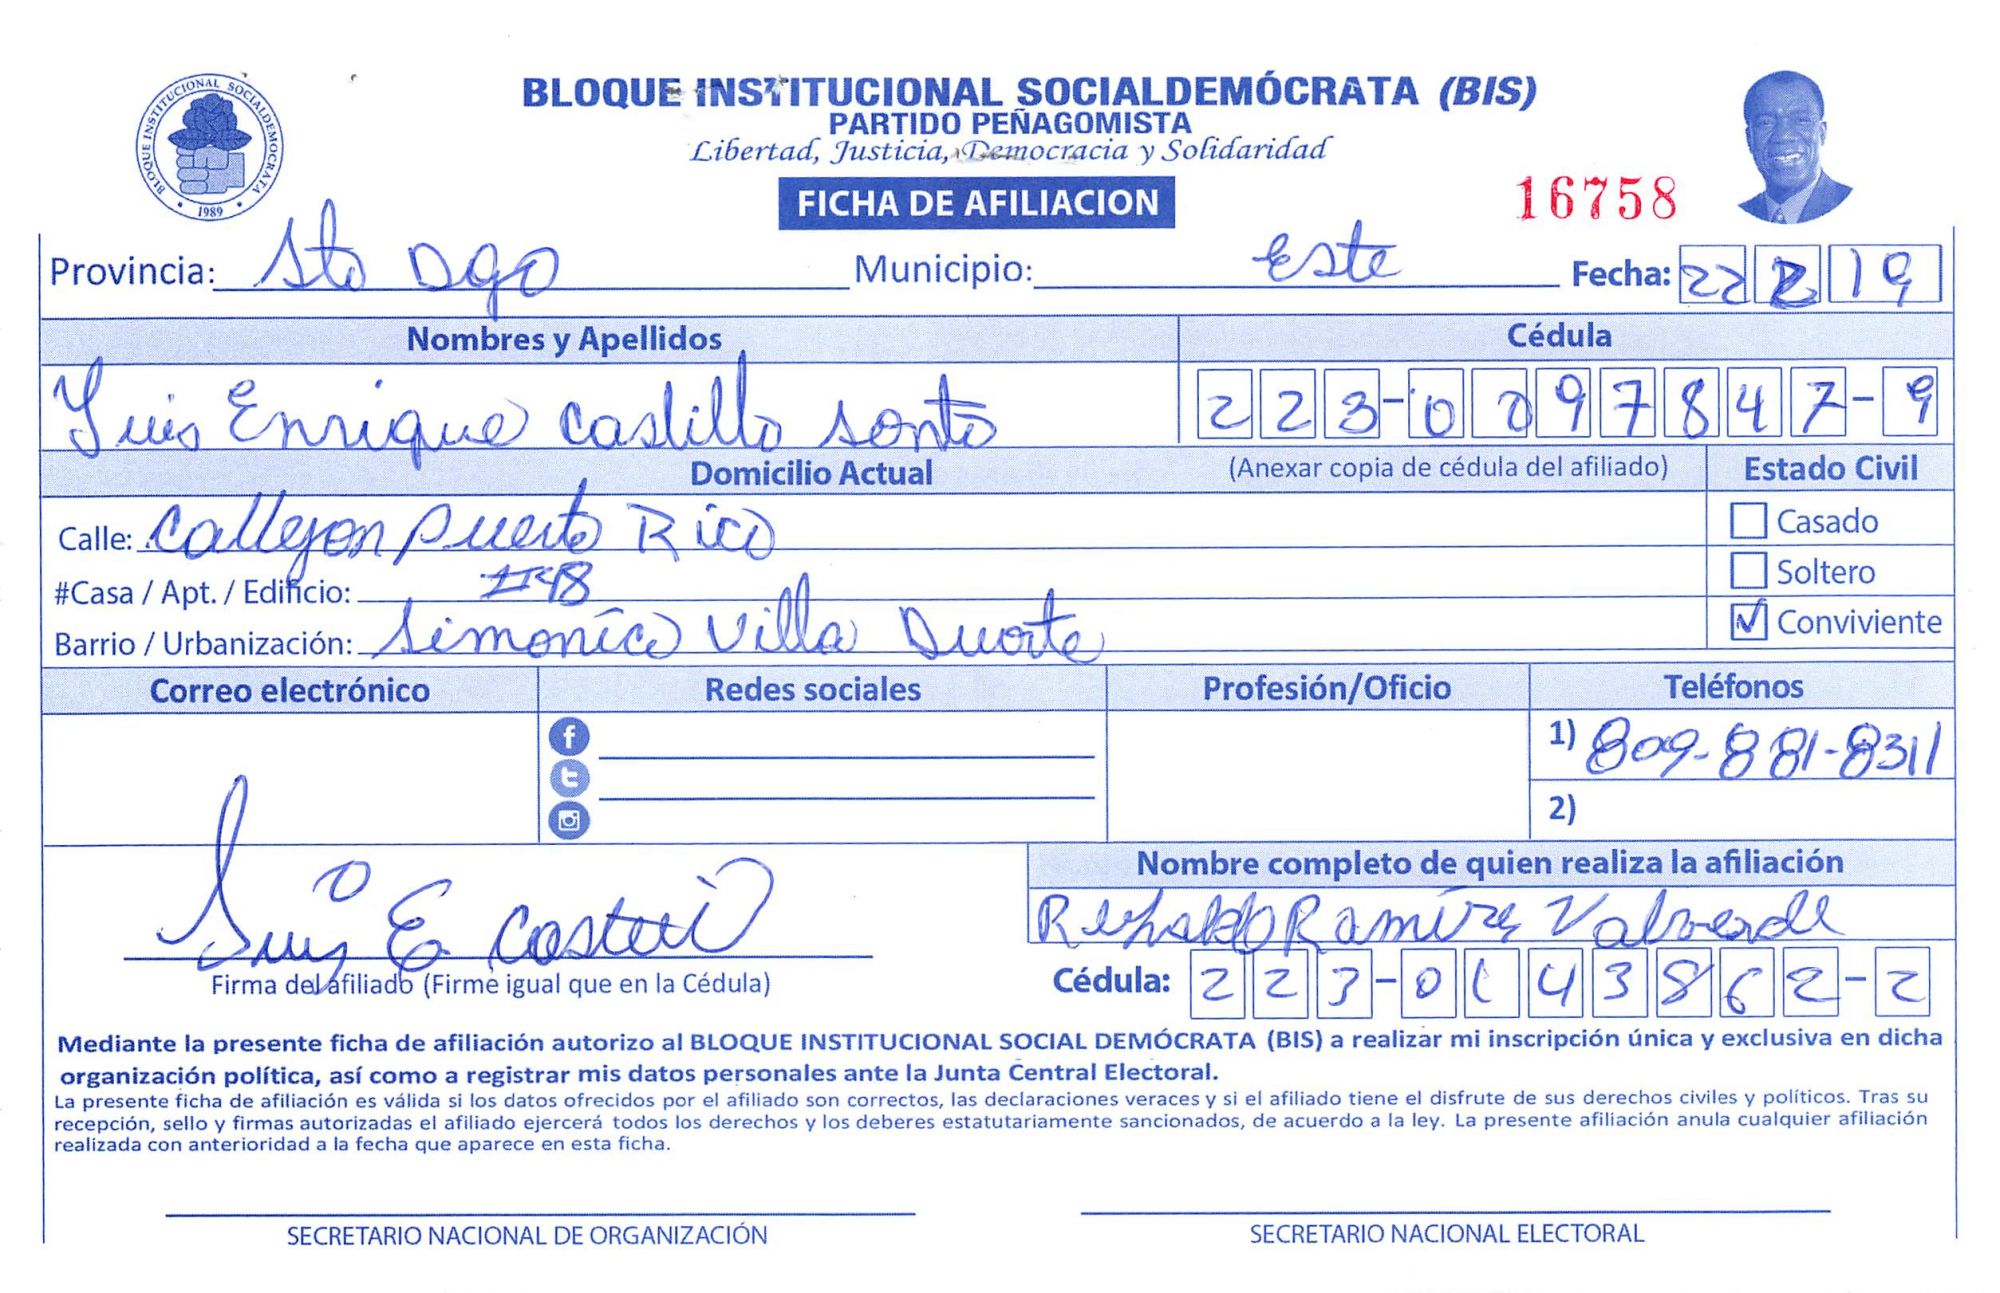 BLOQUE INSTITUCIONAL SOCIALDEMOCRATA
1989
BLOQUE INSTITUCIONAL SOCIALDEMÓCRATA (BIS)
PARTIDO PEÑAGOMISTA
Libertad, Justicia, Democracia y Solidaridad
FICHA DE AFILIACION
16758
Provincia: Sto Dgo Municipio: Este Fecha: 22 2 19
Nombres y Apellidos Cédula
Luis Enrique Castillo Santo 223-0097847-9
Domicilio Actual (Anexar copia de cédula del afiliado) Estado Civil
Calle: Callejon Puerto Rico Casado
#Casa / Apt. / Edificio: #48 Soltero
Barrio / Urbanización: Simonico Villa Duarte Conviviente
Correo electrónico Redes sociales Profesión/Oficio Teléfonos
1) 809-881-8311
2)
Nombre completo de quien realiza la afiliación
Ramírez Valverde
Luis E Castillo
Firma del afiliado (Firme igual que en la Cédula) Cédula: 223-0143862-2
Mediante la presente ficha de afiliación autorizo al BLOQUE INSTITUCIONAL SOCIAL DEMÓCRATA (BIS) a realizar mi inscripción única y exclusiva en dicha
organización política, así como a registrar mis datos personales ante la Junta Central Electoral.
La presente ficha de afiliación es válida si los datos ofrecidos por el afiliado son correctos, las declaraciones veraces y si el afiliado tiene el disfrute de sus derechos civiles y políticos. Tras su
recepción, sello y firmas autorizadas el afiliado ejercerá todos los derechos y los deberes estatutariamente sancionados, de acuerdo a la ley. La presente afiliación anula cualquier afiliación
realizada con anterioridad a la fecha que aparece en esta ficha.
SECRETARIO NACIONAL DE ORGANIZACIÓN SECRETARIO NACIONAL ELECTORAL